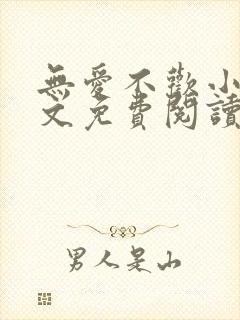 無愛不歡小
文免費閱讀
男人是山